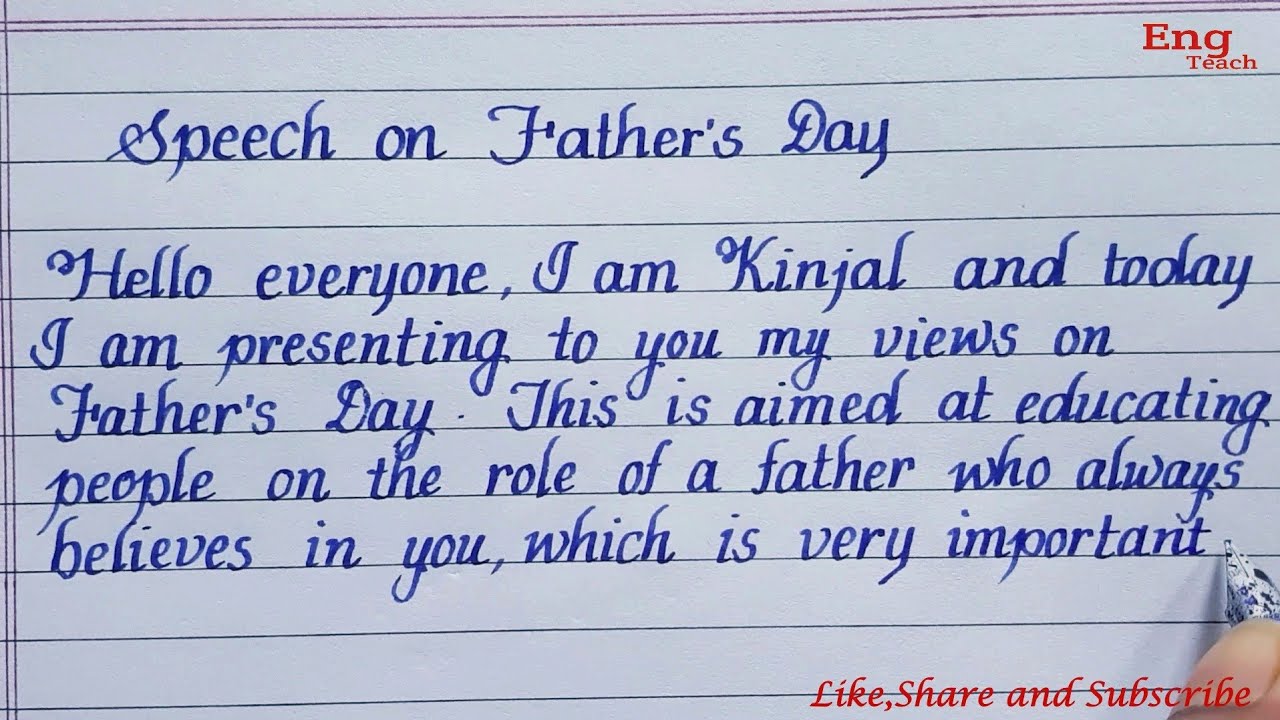 Eng
Teach
Speech on Father's Day
Hello everyone, I am Kinjal and today
I am presenting to you my views on
Father's Day. This is aimed at educating
people on the role of a father who always
believes in you, which is very important
Like,Share and Subscribe